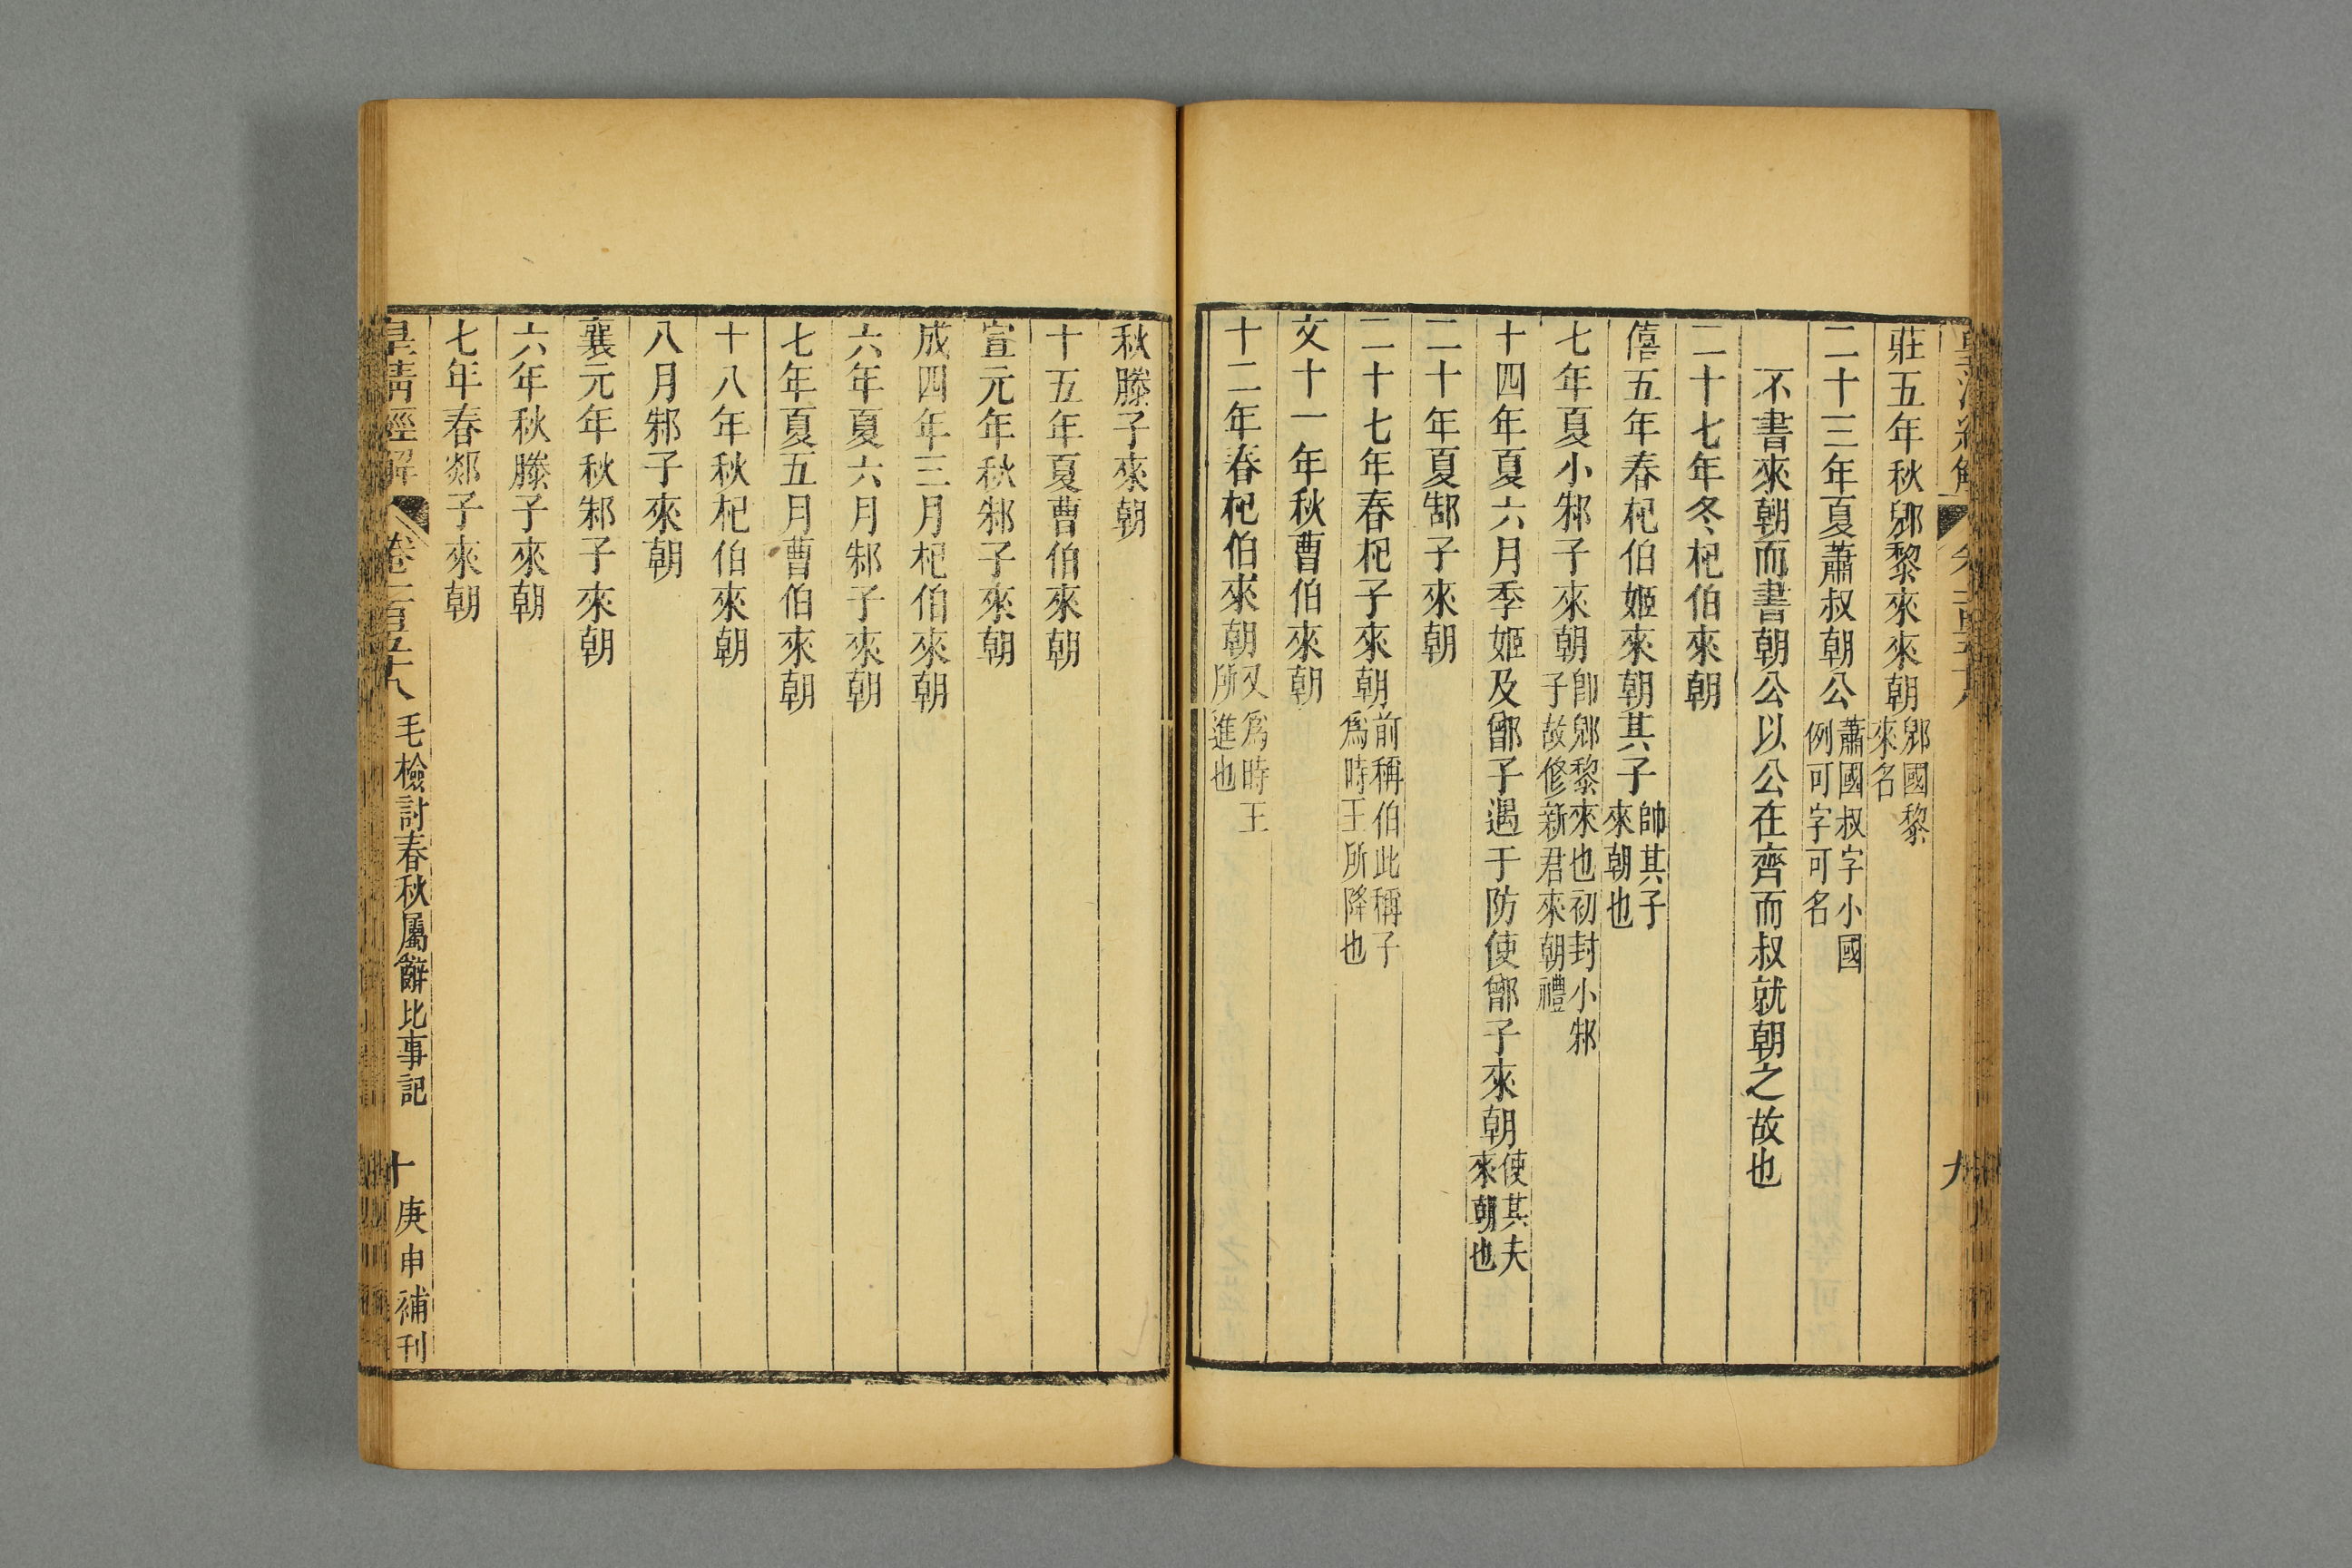 莊五年秋郳黎來來朝郳國黎來名
二十三年夏蕭叔朝公蕭國叔字小國例可字可名
不書來朝而書朝公以公在齊而叔就朝之故也
二十七年冬杞伯來朝
僖五年春杞伯姬來朝其子帥其子來朝也
七年夏小邾子來朝卽郳黎來也初封小邾子故修新君來朝禮
十四年夏六月季姬及鄫子遇于防使鄫子來朝使其夫來朝也
二十年夏郜子來朝
二十七年春杞子來朝前稱伯此稱子爲時王所降也
文十一年秋曹伯來朝
十二年春杞伯來朝又爲時王所進也
秋滕子來朝
十五年夏曹伯來朝
宣元年秋邾子來朝
成四年三月杞伯來朝
六年夏六月邾子來朝
七年夏五月曹伯來朝
十八年秋杞伯來朝
八月邾子來朝
襄元年秋邾子來朝
六年秋滕子來朝
七年春郯子來朝
皇清經解 卷一百五十八 毛檢討春秋屬辭比事記 十 庚申補刊